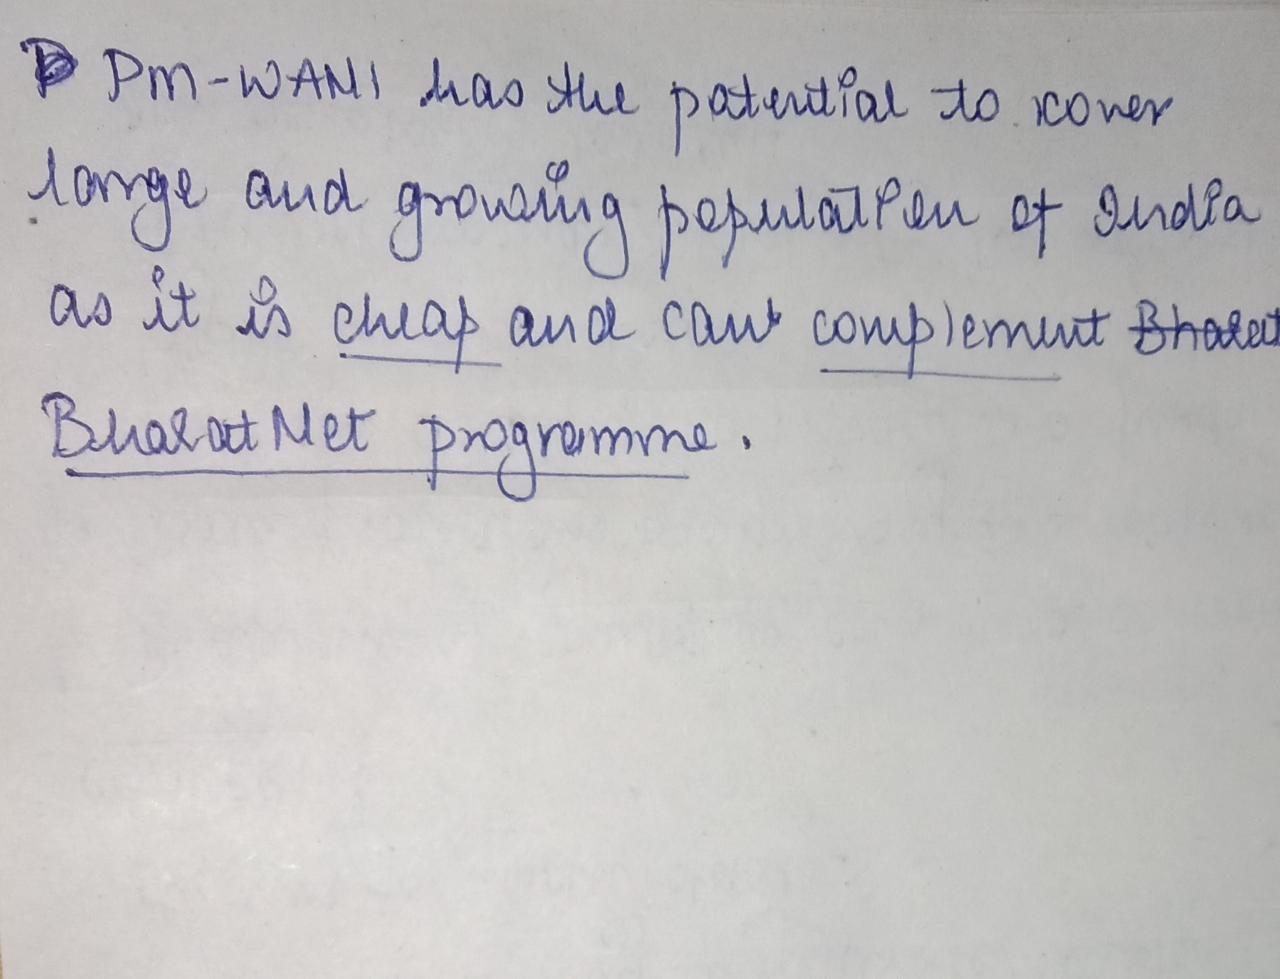 PM-WANI has the potential to cover
large and growing population of India
as it is cheap and can complement Bharat
BharatNet programme.